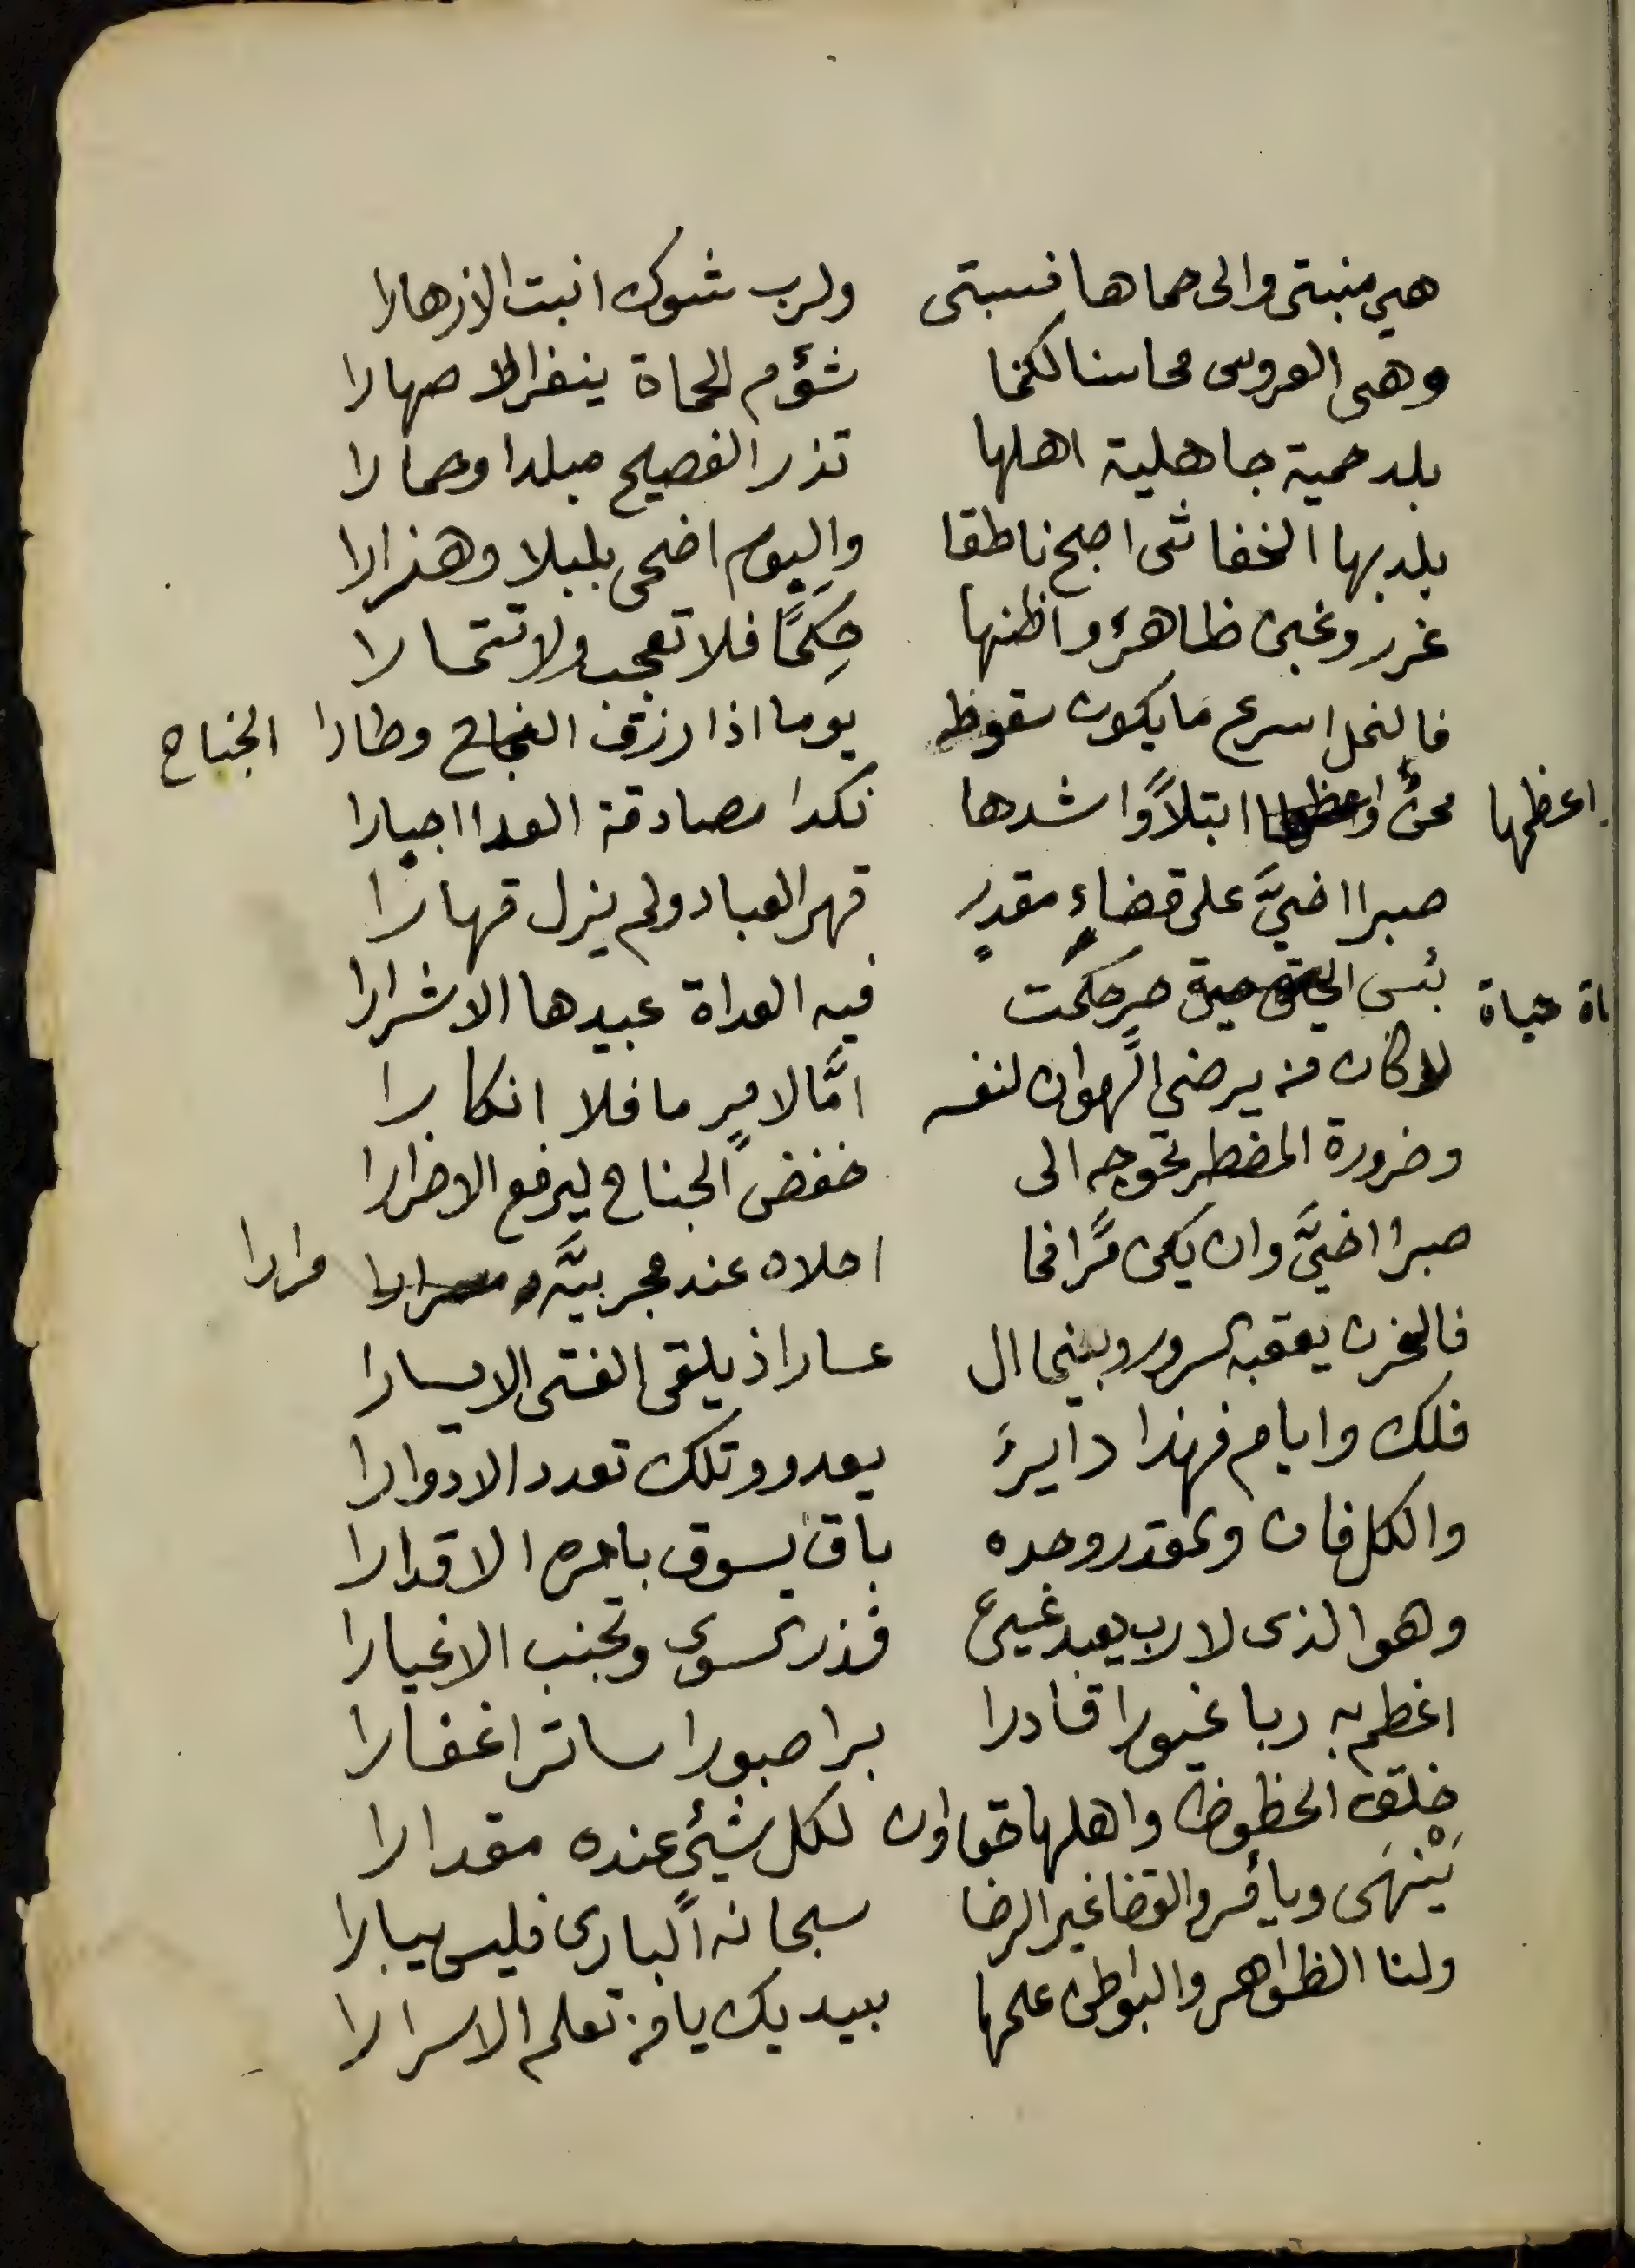 هي منبتى والى حماها نسبتى ولرب شوك انبت الازهارا
وهى العروس محاسنا لكنما شؤم الحماة ينفر الاصهارا
بلد حمية جاهلية اهلها تذر الفصيح مبلدا وحمارا
بلد بها الخفاش اصبح ناطقا واليوم اضحى بلبلا وهزارا
غرر وغبن ظاهر واظنها حِكَمًا فلا تعجب ولا تتمارا
فالنمل اسرع ما يكون سقوطه يوما اذا رزق النجاح وطارا الجناح
اعظمها محن ابتلاءً واشدها نكدا مصادقة العدا اجبارا
صبرا اخيَّ على قضاءٍ مقدرٍ قهر العباد ولم يزل قهارا
حياة بئس حر حكمت فيه العداة عبيدها الاشرارا
لو كان من يرضى الهوان لنفسه امَّا لامرٍ ما فلا انكارا
وضرورة المضطر تحوجه الى خفض الجناح ليرفع الاضرارا
صبرا اخيَّ وان يكن مرًّا فما احلاه عند مجربيَّه مرارا
فالحزن يعقبه السرور وبينما ال عسار اذ يلقى الفتى الايسارا
فلك وايام فهذا دايرٌ يعدو وتلك تعدد الادوارا
والكل فان والمقدر وحده باق يسوق بامره الاقدارا
وهو الذى لا رب يعبد غيره فذر السوى وتجنب الاغيارا
اعظم به ربا غيورا قادرا برا صبورا ساترا غفارا
خلق الحظوظ واهلها حقا وان لكل شيئ عنده مقدارا
يَنْهَى ويأمر والقضا غير الرضا سبحانه البارى فليس يبارا
ولنا الظواهر والبواطن علمها بيديك يا من تعلم الاسرارا